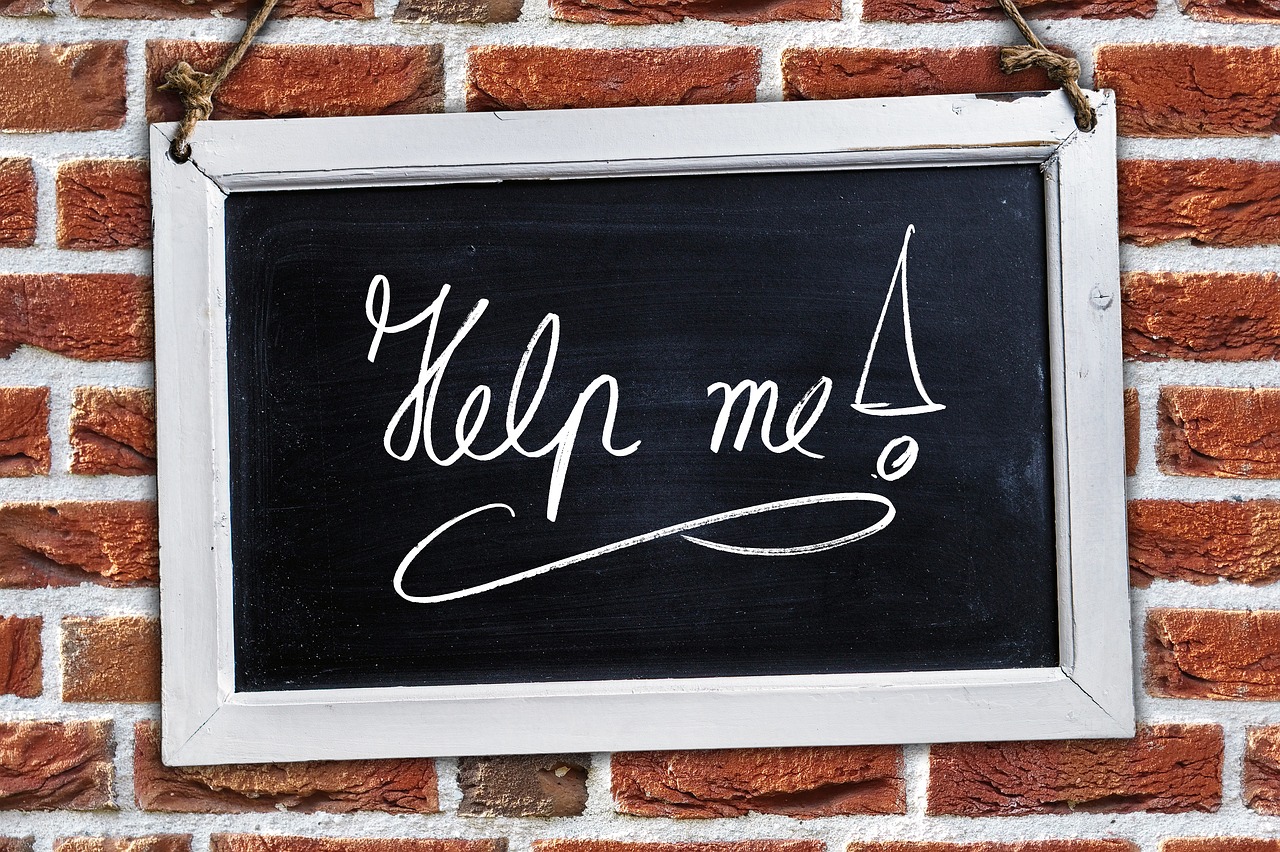 Help me!